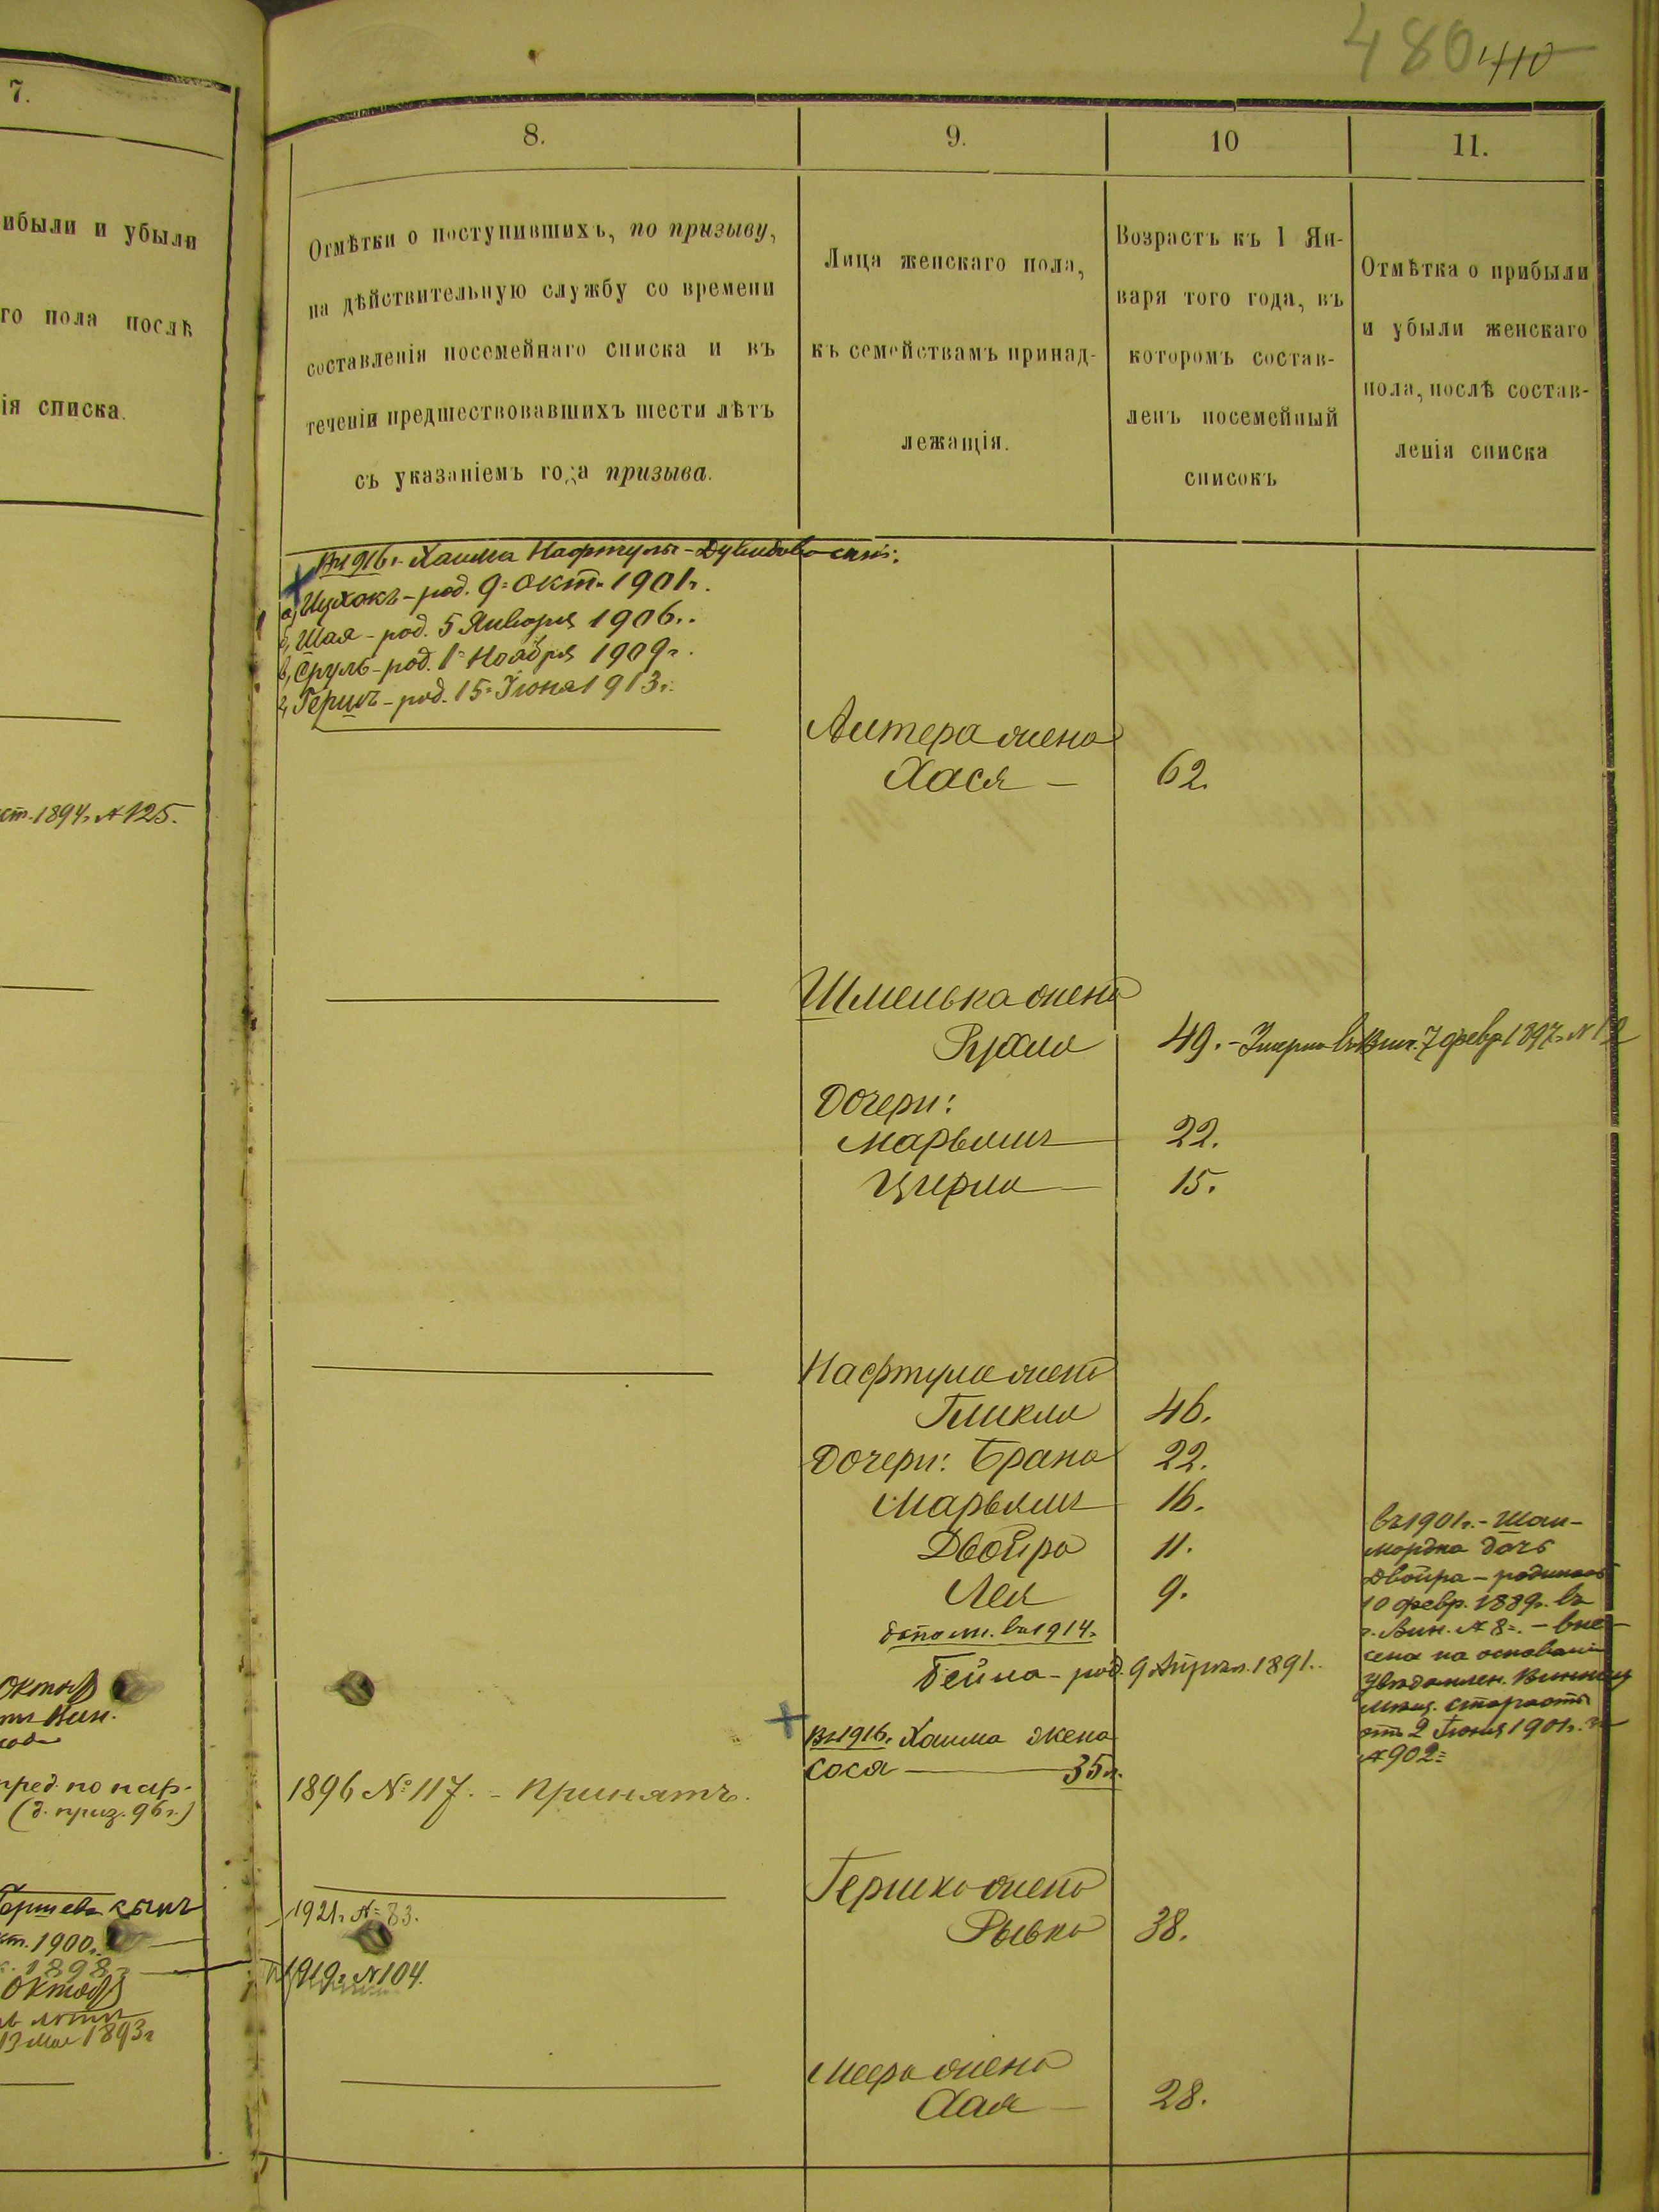 480 410
7.
8.
9.
10
11.
ибыли и убыли
го пола послѣ
ія списка.
Отмѣтки о поступившихъ, по призыву,
на дѣйствительную службу со времени
составленія посемейнаго списка и въ
теченіи предшествовавшихъ шести лѣтъ
съ указаніемъ года призыва.
Лица женскаго пола,
къ семействамъ принад-
лежащія.
Возрастъ къ 1 Ян-
варя того года, въ
которомъ состав-
ленъ посемейный
списокъ
Отмѣтка о прибыли
и убыли женскаго
пола, послѣ состав-
ленія списка
Въ 1916 г. Хаима Нафтулы-Дувидова сын.:
а, Ицхокъ - род. 9 Окт. 1901 г.
б, Шая - род. 5 Января 1906 г.
в, Сруль - род. 1 Ноября 1909 г.
г, Гершъ - род. 15 Іюня 1913 г.
Антера жена
Хася — 62.
ст. 1894 г. № 125.
Шмелька жена
Рухля 49. - Умерла въ Вин. 7 февр. 1897 г. № 12
Дочери:
Марьямъ 22.
Цирля 15.
Нафтула жена
Гликля 46.
Дочери: Брана 22.
Марьямъ 16.
Двойра 11.
Лея 9.
дополн. въ 1914 г.
Бейла - род. 9 Апрѣл. 1891 г.
въ 1901 г. - Шаи-
мордка дочь
Двойра - родилась
10 февр. 1889 г. въ
г. Вин. № 8. - вне-
сена на основаніи
увѣдомлен. Винниц
мѣщ. старосты
отъ 2 Іюня 1901 г. за
№ 902
Въ 1916 г. Хаима жена
Сося — 35 л.
Октяб
Вин.
пред. по нар.
(д. приз. 96 г.)
1896 № 117. - Принятъ.
Гершко жена
Рывка 38.
Гершева сынъ
кт. 1900 г.
1898 г.
Октяб
13 Мая 1893 г
1921 г. № 83.
1919 г. № 104.
Меера жена
Хая — 28.